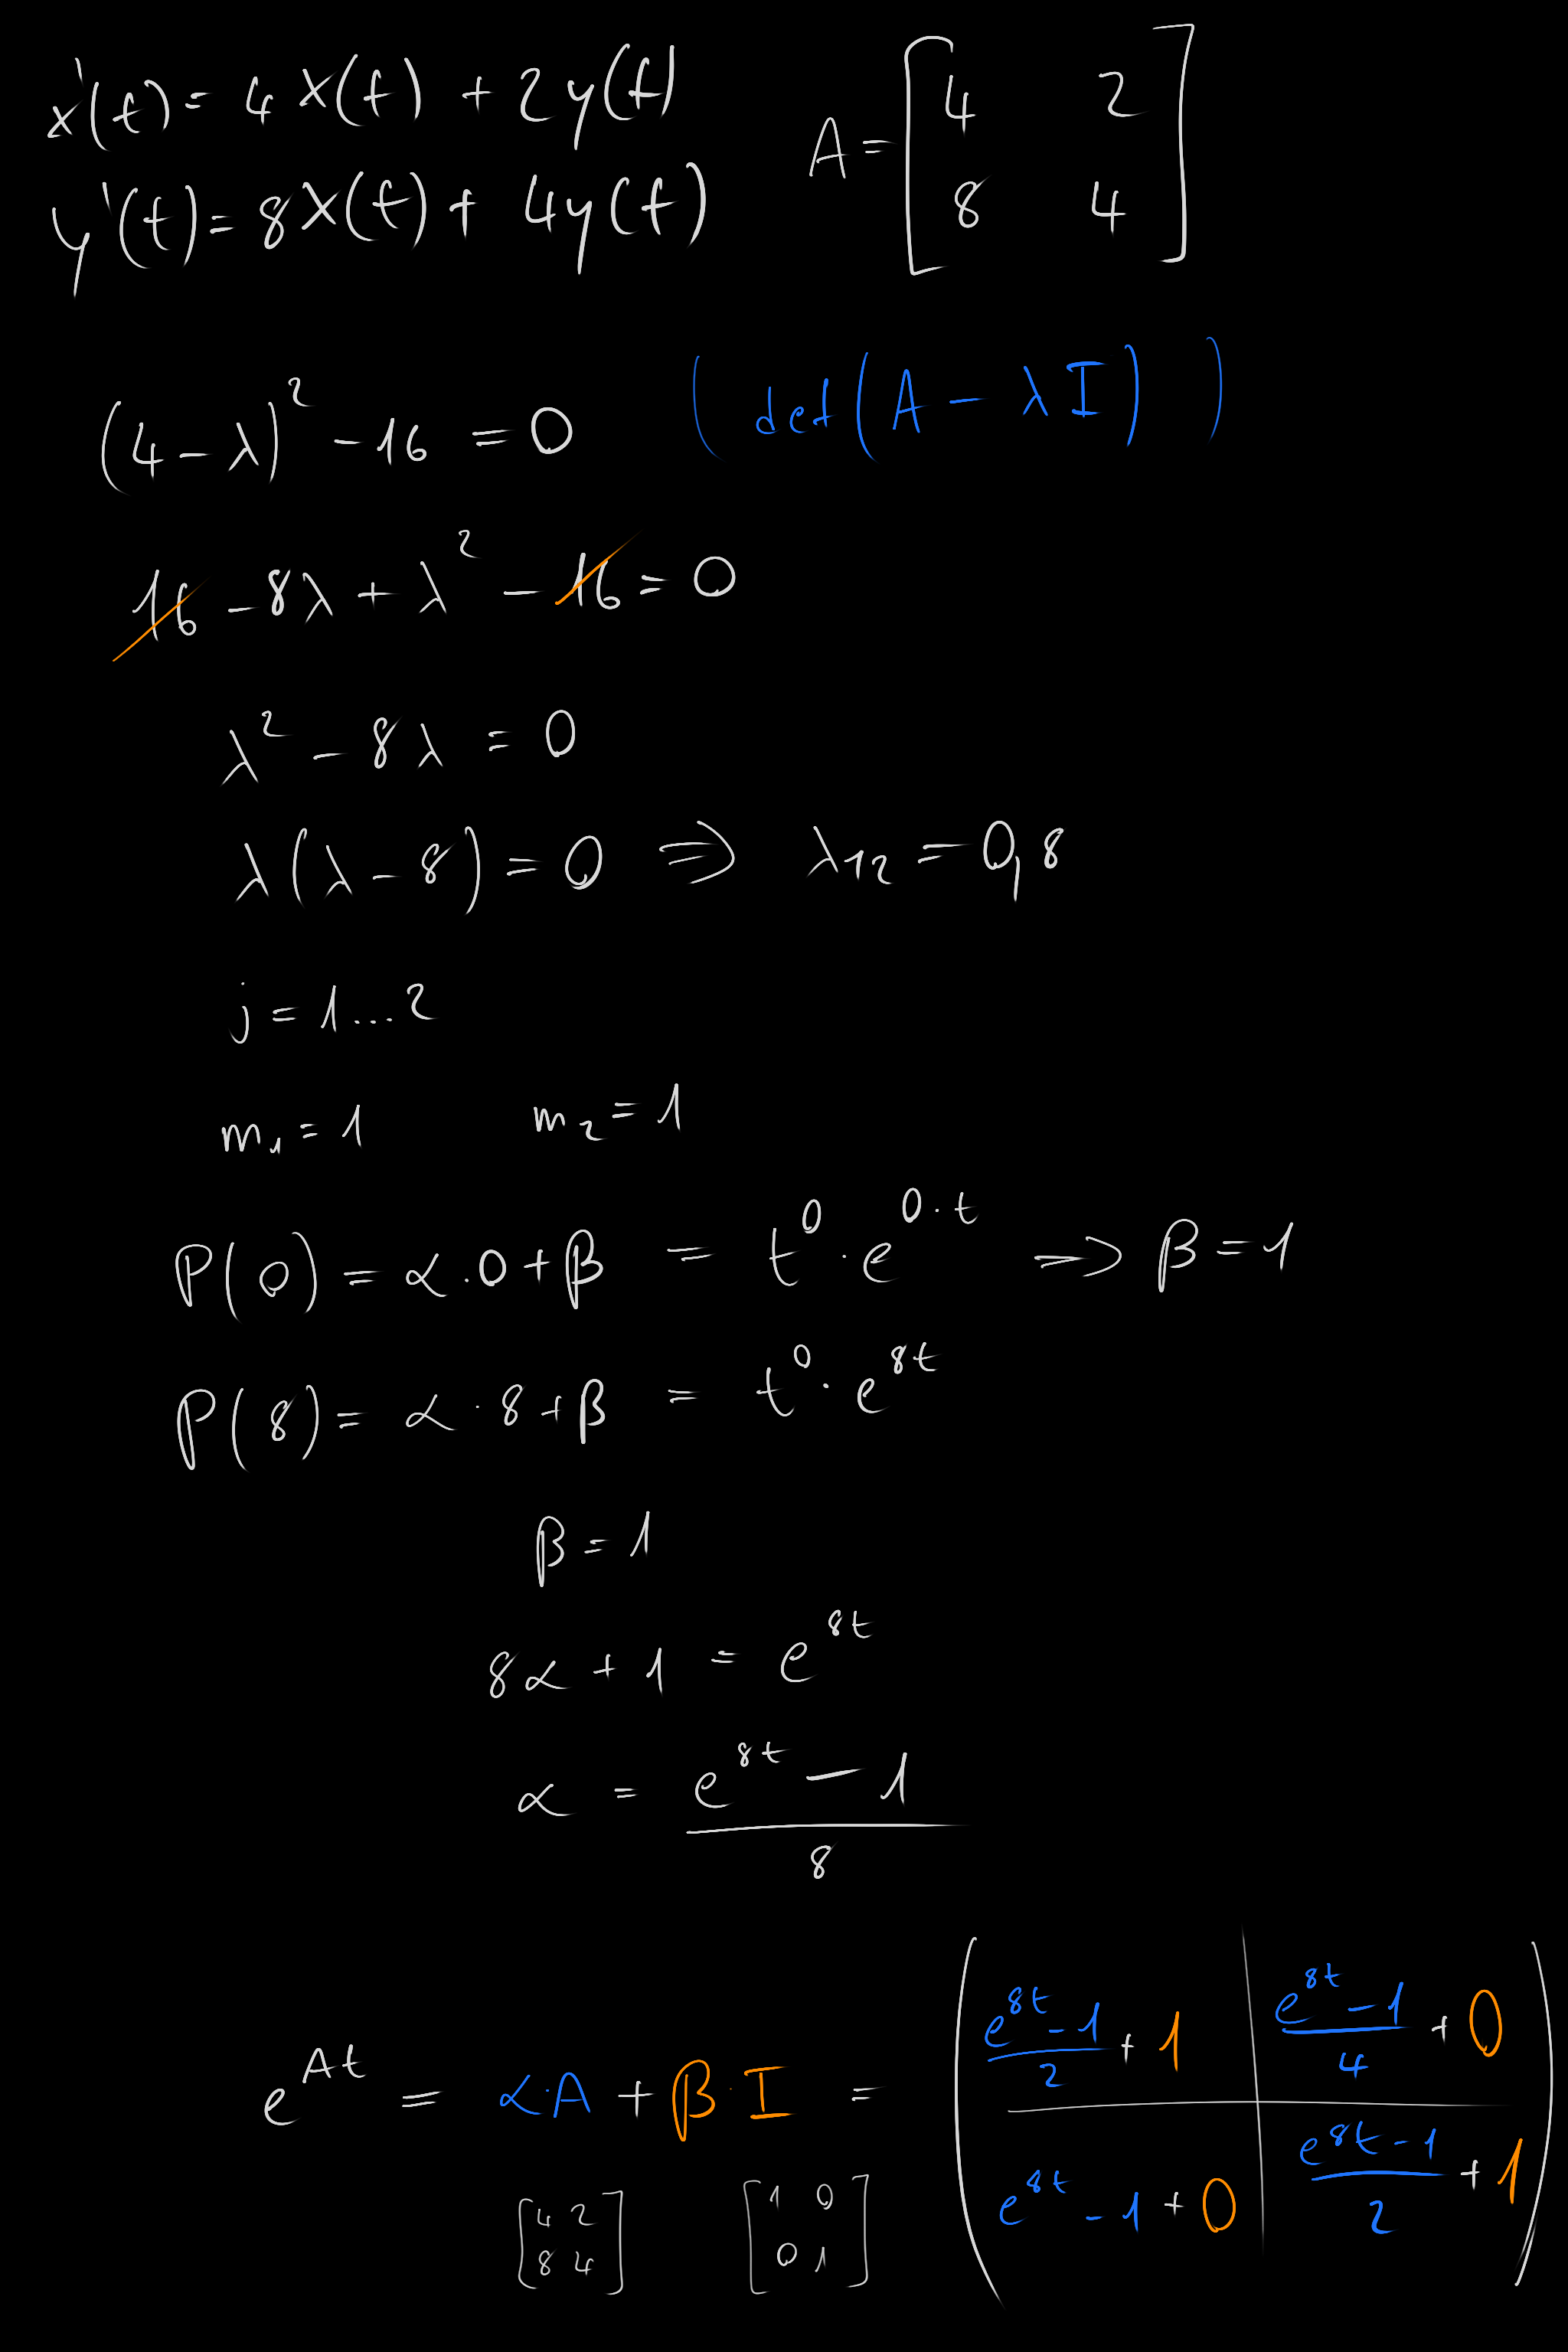 x'(t) = 4x(t) + 2y(t)
y'(t) = 8x(t) + 4y(t)
A = [4 2
8 4]
(4 - λ)² - 16 = 0 (det(A - λI))
16 - 8λ + λ² - 16 = 0
λ² - 8λ = 0
λ(λ - 8) = 0 ⇒ λ₁₂ = 0, 8
j = 1...2
m₁ = 1 m₂ = 1
P(0) = α · 0 + β = t⁰ · e^(0·t) ⇒ β = 1
P(8) = α · 8 + β = t⁰ · e^(8t)
β = 1
8α + 1 = e^(8t)
α = (e^(8t) - 1)/8
e^(At) = α·A + β·I = ( (e^(8t) - 1)/2 + 1 | (e^(8t) - 1)/4 + 0
e^(8t) - 1 + 0 | (e^(8t) - 1)/2 + 1 )
[4 2 [1 0
8 4] 0 1]